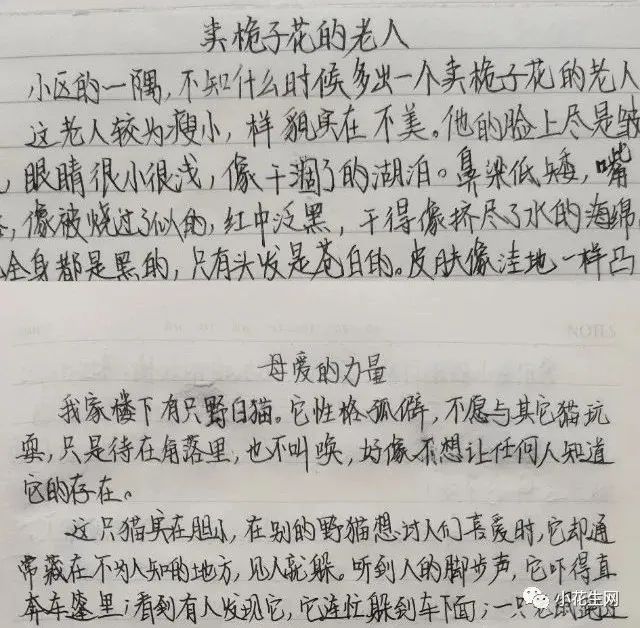 卖桅子花的老人
小区的一隅,不知什么时候多出一个卖桅子花的老人
这老人较为瘦小,样貌实在不美。他的脸上尽是皱
,眼睛很小很浅,像干涸了的湖泊。鼻梁低矮,嘴
,像被烧过了似的,红中泛黑,干得像挤尽了水的海绵
全身都是黑的,只有头发是苍白的。皮肤像洼地一样凸
NOTES
母爱的力量
我家楼下有只野白猫。它性格孤僻,不愿与其它猫玩
耍,只是待在角落里,也不叫唤,好像不想让任何人知道
它的存在。
这只猫实在胆小,在别的野猫想讨人们喜爱时,它却通
常藏在不为人知的地方,见人就躲。听到人的脚步声,它吓得直
奔车篷里;看到有人发现它,它连忙躲到车下面;一只老鼠
小花生网